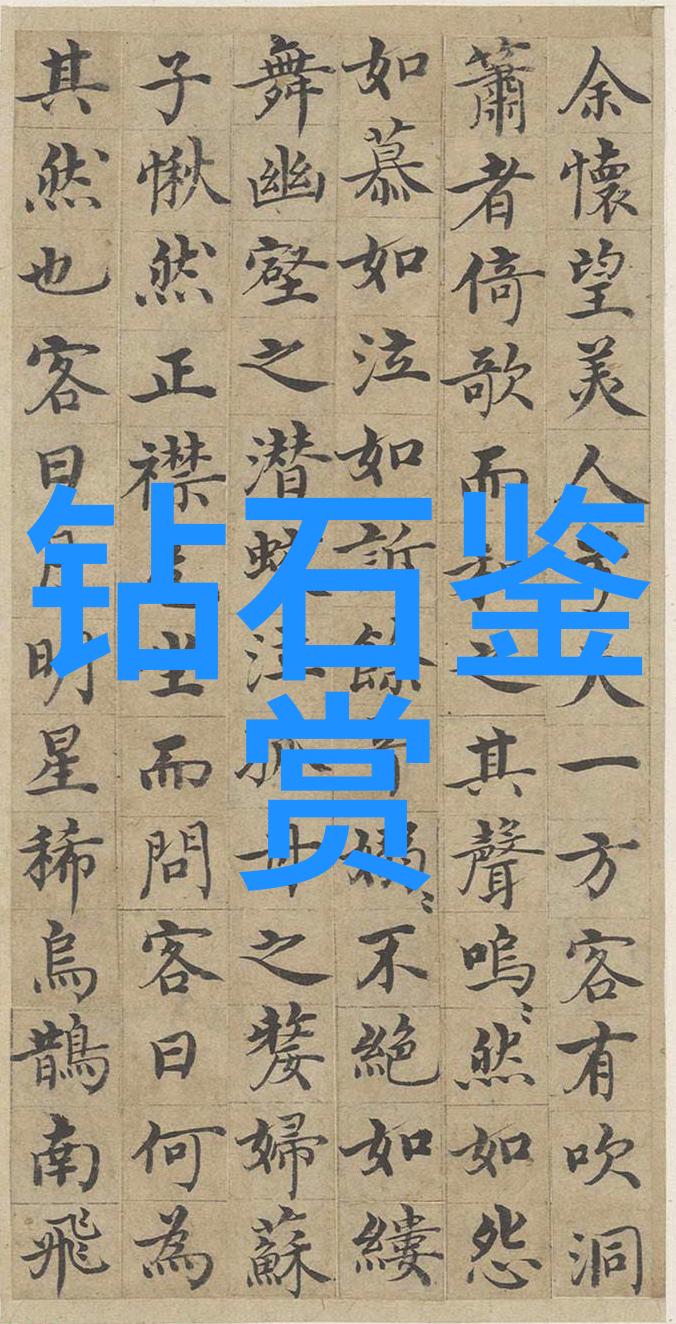 余懷望美人兮天一方客有吹洞
簫者倚歌而和之其聲嗚〻然如怨
如慕如泣如訴餘音嫋〻不絕如縷
舞幽壑之潛蛟泣孤舟之嫠婦蘇
子愀然正襟危坐而問客曰何為
其然也客曰月明星稀烏鵲南飛
钻石鉴
赏